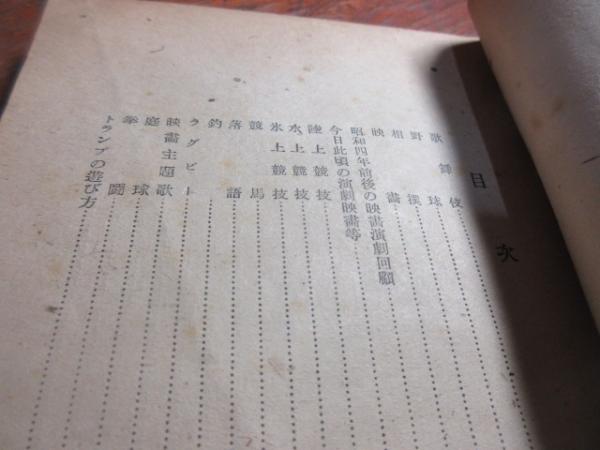 目次
歌舞伎
野球
相撲
映畫
昭和四年前後の映畫演劇回顧
今日此頃の演劇映畫等
陸上競技
水上競技
氷上競技
競馬
落語
釣
ラグビー
映畫主題歌
庭球
拳闘
トランプの遊び方